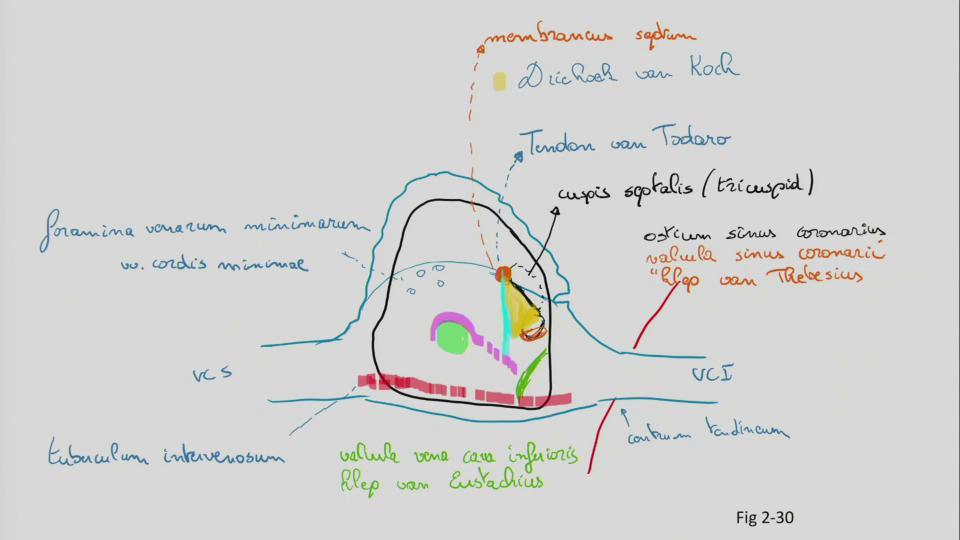 membraneus septum
Driehoek van Koch
Tendon van Todaro
cuspis septalis (tricuspid)
foramina venarum minimarum
vv. cordis minimae
ostium sinus coronarius
valvula sinus coronarii
"klep van Thebesius
VCS
VCI
tuberculum intervenosum
valvula vena cava inferioris
klep van Eustachius
centrum tendineum
Fig 2-30